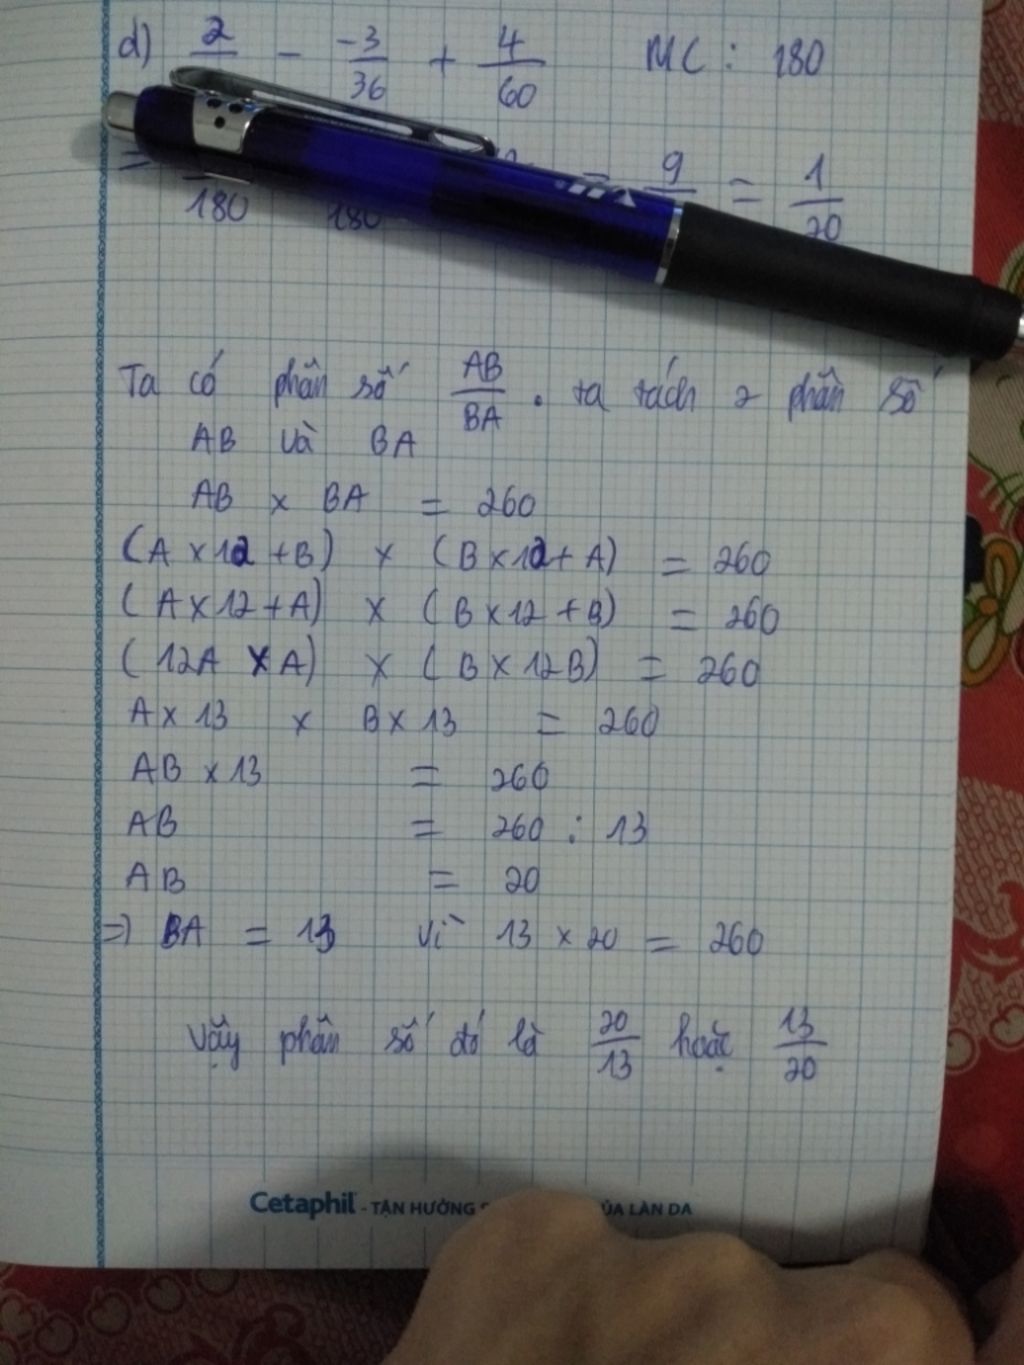 d) 2 - -3/36 + 4/60 MC : 180
= 180 180 = 9 = 1/20
Ta có phân số AB/BA . ta tách 2 phân số
AB và BA
AB x BA = 260
(A x 12 + B) x (B x 12 + A) = 260
(A x 12 + A) x (B x 12 + B) = 260
(12A x A) x (B x 12B) = 260
A x 13 x B x 13 = 260
AB x 13 = 260
AB = 260 : 13
AB = 20
=> BA = 13 vì 13 x 20 = 260
Vậy phân số đó là 20/13 hoặc 13/20
Cetaphil - TẬN HƯỞNG CỦA LÀN DA